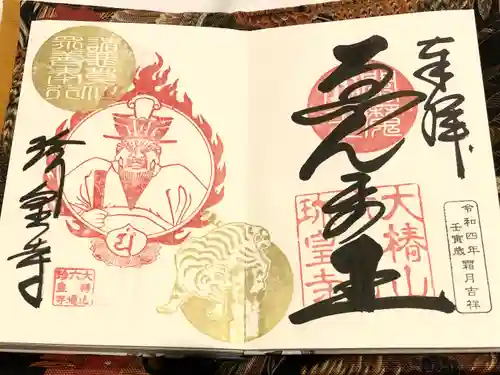 奉拝
ゑんま王
大椿山
六道
珍皇寺
令和四年 霜月吉祥
壬寅歳
諸悪莫作
衆善奉行
珍皇寺
大椿山
六道
珍皇寺